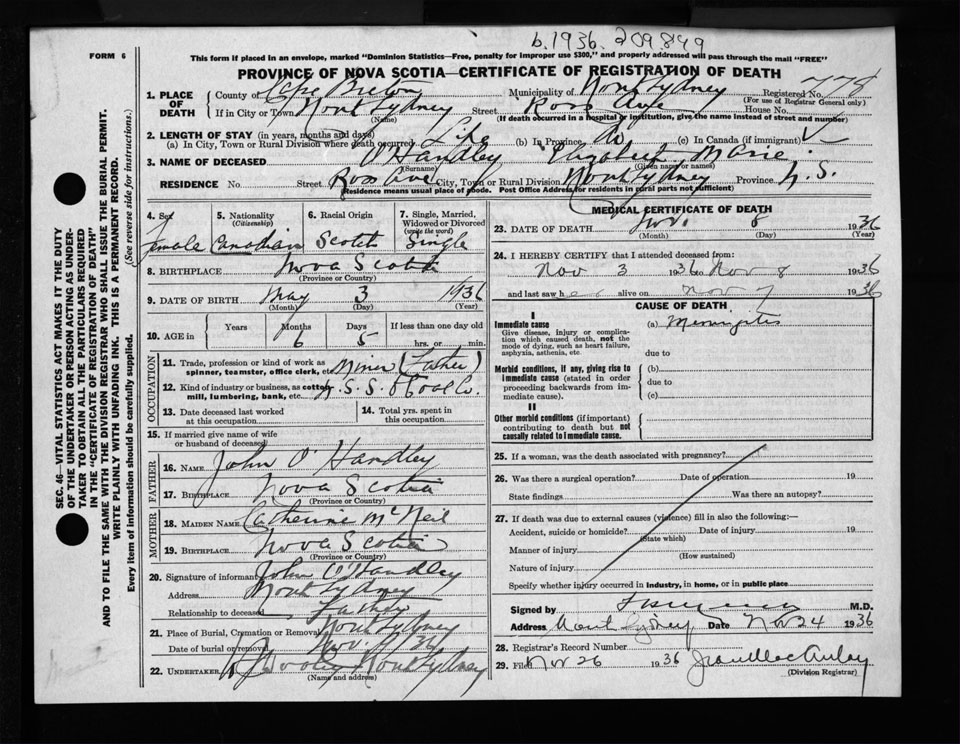 b.1936. 209849
FORM 6
This form if placed in an envelope, marked "Dominion Statistics—Free, penalty for improper use $300," and properly addressed will pass through the mail "FREE"
PROVINCE OF NOVA SCOTIA—CERTIFICATE OF REGISTRATION OF DEATH
1. PLACE OF DEATH
County of Cape Breton Municipality of North Sydney Registered No. 778
(For use of Registrar General only)
If in City or Town North Sydney Street Ross Ave House No.
(Name) (If death occurred in a hospital or institution, give the name instead of street and number)
2. LENGTH OF STAY (in years, months and days)
(a) In City, Town or Rural Division where death occurred Life (b) In Province (c) In Canada (if immigrant)
3. NAME OF DECEASED O'Handley Elizabeth Marie
(Surname) (Given name or names)
RESIDENCE No. Street Ross Ave City, Town or Rural Division North Sydney Province N.S.
(Residence means usual place of abode. Post Office Address for residents in rural parts not sufficient)
4. Sex
Female
5. Nationality
(Citizenship)
Canadian
6. Racial Origin
Scotch
7. Single, Married, Widowed or Divorced
(write the word)
Single
8. BIRTHPLACE Nova Scotia
(Province or Country)
9. DATE OF BIRTH May 3 1936
(Month) (Day) (Year)
10. AGE in Years Months Days If less than one day old
6 5 hrs. or min.
OCCUPATION
11. Trade, profession or kind of work as spinner, teamster, office clerk, etc. Miner (Father)
12. Kind of industry or business, as cotton mill, lumbering, bank, etc. N.S.S. & Coal Co.
13. Date deceased last worked at this occupation
14. Total yrs. spent in this occupation
15. If married give name of wife or husband of deceased
FATHER
16. NAME John O'Handley
17. BIRTHPLACE Nova Scotia
(Province or Country)
MOTHER
18. MAIDEN NAME Catherine McNeil
19. BIRTHPLACE Nova Scotia
(Province or Country)
20. Signature of informant John O'Handley
Address North Sydney
Relationship to deceased Father
21. Place of Burial, Cremation or Removal North Sydney
Date of burial or removal Nov 36
22. UNDERTAKER North Sydney
(Name and address)
MEDICAL CERTIFICATE OF DEATH
23. DATE OF DEATH Nov. 8 1936
(Month) (Day) (Year)
24. I HEREBY CERTIFY that I attended deceased from:
Nov 3 1936 to Nov 8 1936
and last saw her alive on Nov 7 1936
CAUSE OF DEATH
I
Immediate cause
Give disease, injury or complication which caused death, not the mode of dying, such as heart failure, asphyxia, asthenia, etc.
(a) Meningitis
due to
Morbid conditions, if any, giving rise to immediate cause (stated in order proceeding backwards from immediate cause).
(b)
due to
(c)
II
Other morbid conditions (if important) contributing to death but not causally related to immediate cause.
25. If a woman, was the death associated with pregnancy?
26. Was there a surgical operation? Date of operation 19
State findings Was there an autopsy?
27. If death was due to external causes (violence) fill in also the following:—
Accident, suicide or homicide? Date of injury 19
(State which)
Manner of injury
(How sustained)
Nature of injury
Specify whether injury occurred in industry, in home, or in public place
Signed by M.D.
Address North Sydney Date Nov 24 1936
28. Registrar's Record Number
29. Filed Nov 26 1936
(Division Registrar)
SEC. 46—VITAL STATISTICS ACT MAKES IT THE DUTY
OF THE UNDERTAKER OR PERSON ACTING AS UNDER-
TAKER TO OBTAIN ALL THE PARTICULARS REQUIRED
IN THE "CERTIFICATE OF REGISTRATION OF DEATH"
AND TO FILE THE SAME WITH THE DIVISION REGISTRAR WHO SHALL ISSUE THE BURIAL PERMIT.
WRITE PLAINLY WITH UNFADING INK. THIS IS A PERMANENT RECORD.
Every item of information should be carefully supplied. (See reverse side for instructions.)